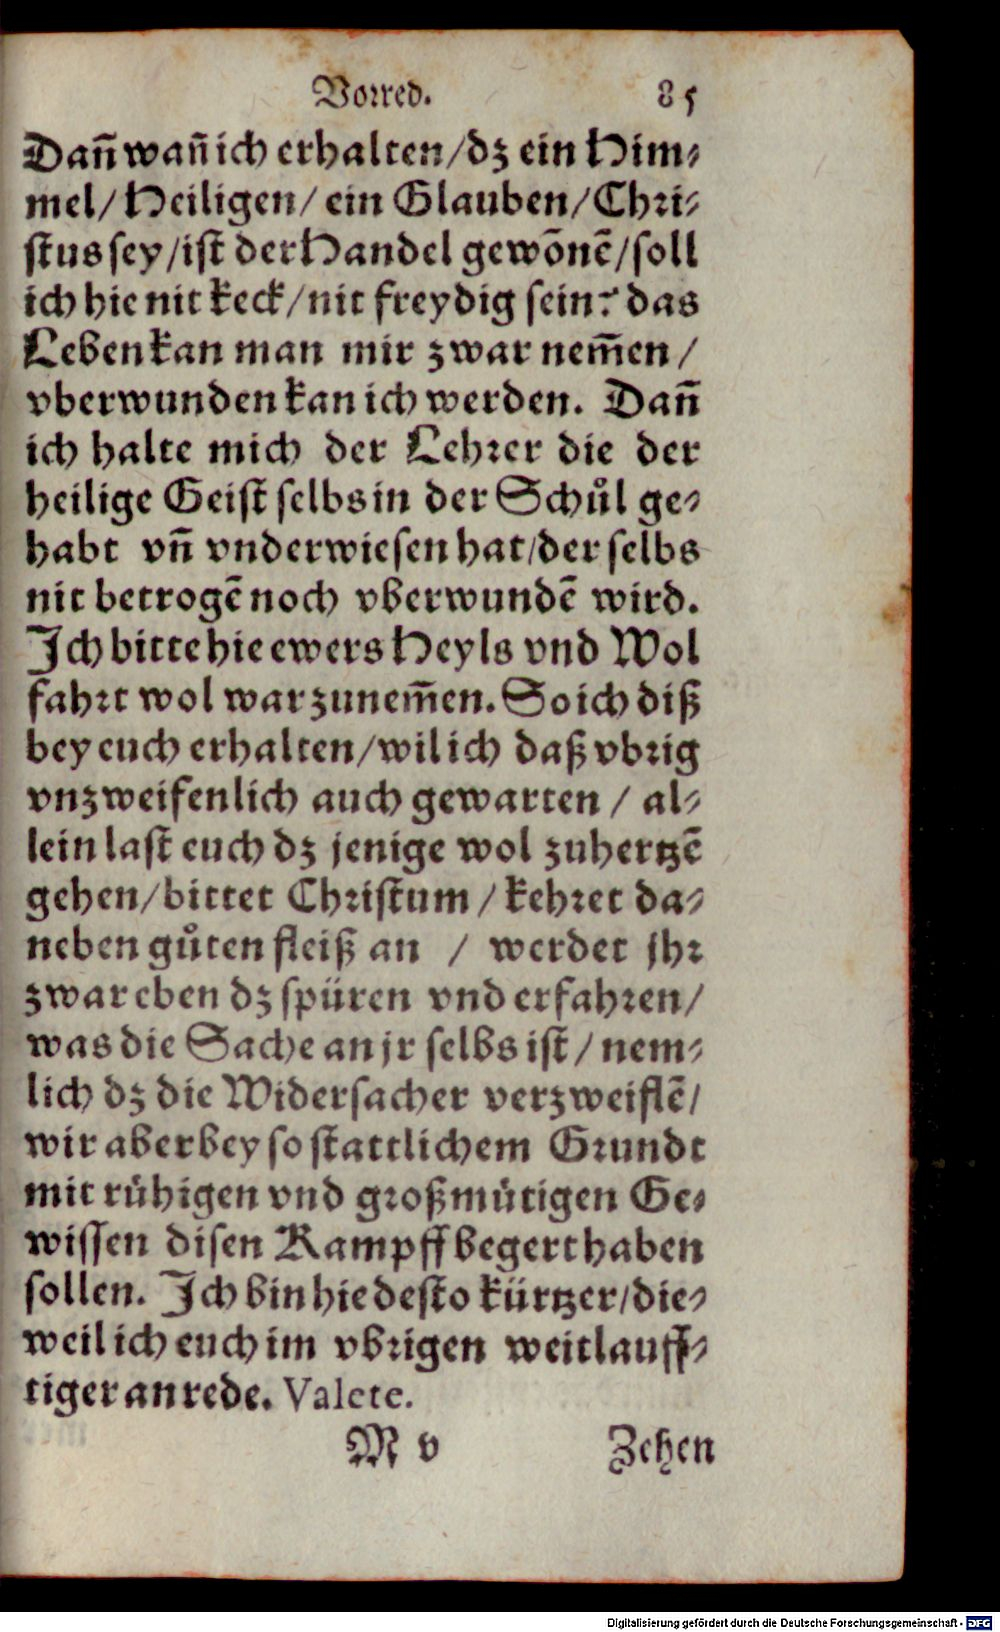 Vorred. 85
Dañ wañ ich erhalten/dz ein Him⸗
mel/Heiligen/ ein Glauben/Chri⸗
stus sey/ist der Handel gewōnē/soll
ich hie nit keck/nit freydig sein? das
Leben kan man mir zwar nem̃en/
vberwunden kan ich werden. Dañ
ich halte mich der Lehrer die der
heilige Geist selbs in der Schůl ge⸗
habt vñ vnderwiesen hat/der selbs
nit betrogē noch vberwundē wird.
Ich bitte hie ewers Heyls vnd Wol
fahrt wol war zunem̃en. So ich diß
bey euch erhalten/wil ich daß vbrig
vnzweifenlich auch gewarten / al⸗
lein last euch dz jenige wol zuhertzē
gehen/bittet Christum / kehret da⸗
neben gůten fleiß an / werdet jhr
zwar eben dz spüren vnd erfahren/
was die Sache an jr selbs ist/ nem⸗
lich dz die Widersacher verzweiflē/
wir aber bey so stattlichem Grundt
mit rühigen vnd großmütigen Ge⸗
wissen disen Kampff begert haben
sollen. Ich bin hie desto kürtzer/die⸗
weil ich euch im vbrigen weitlauff⸗
tiger anrede. Valete.
M v Zehen
Digitalisierung gefördert durch die Deutsche Forschungsgemeinschaft - DFG